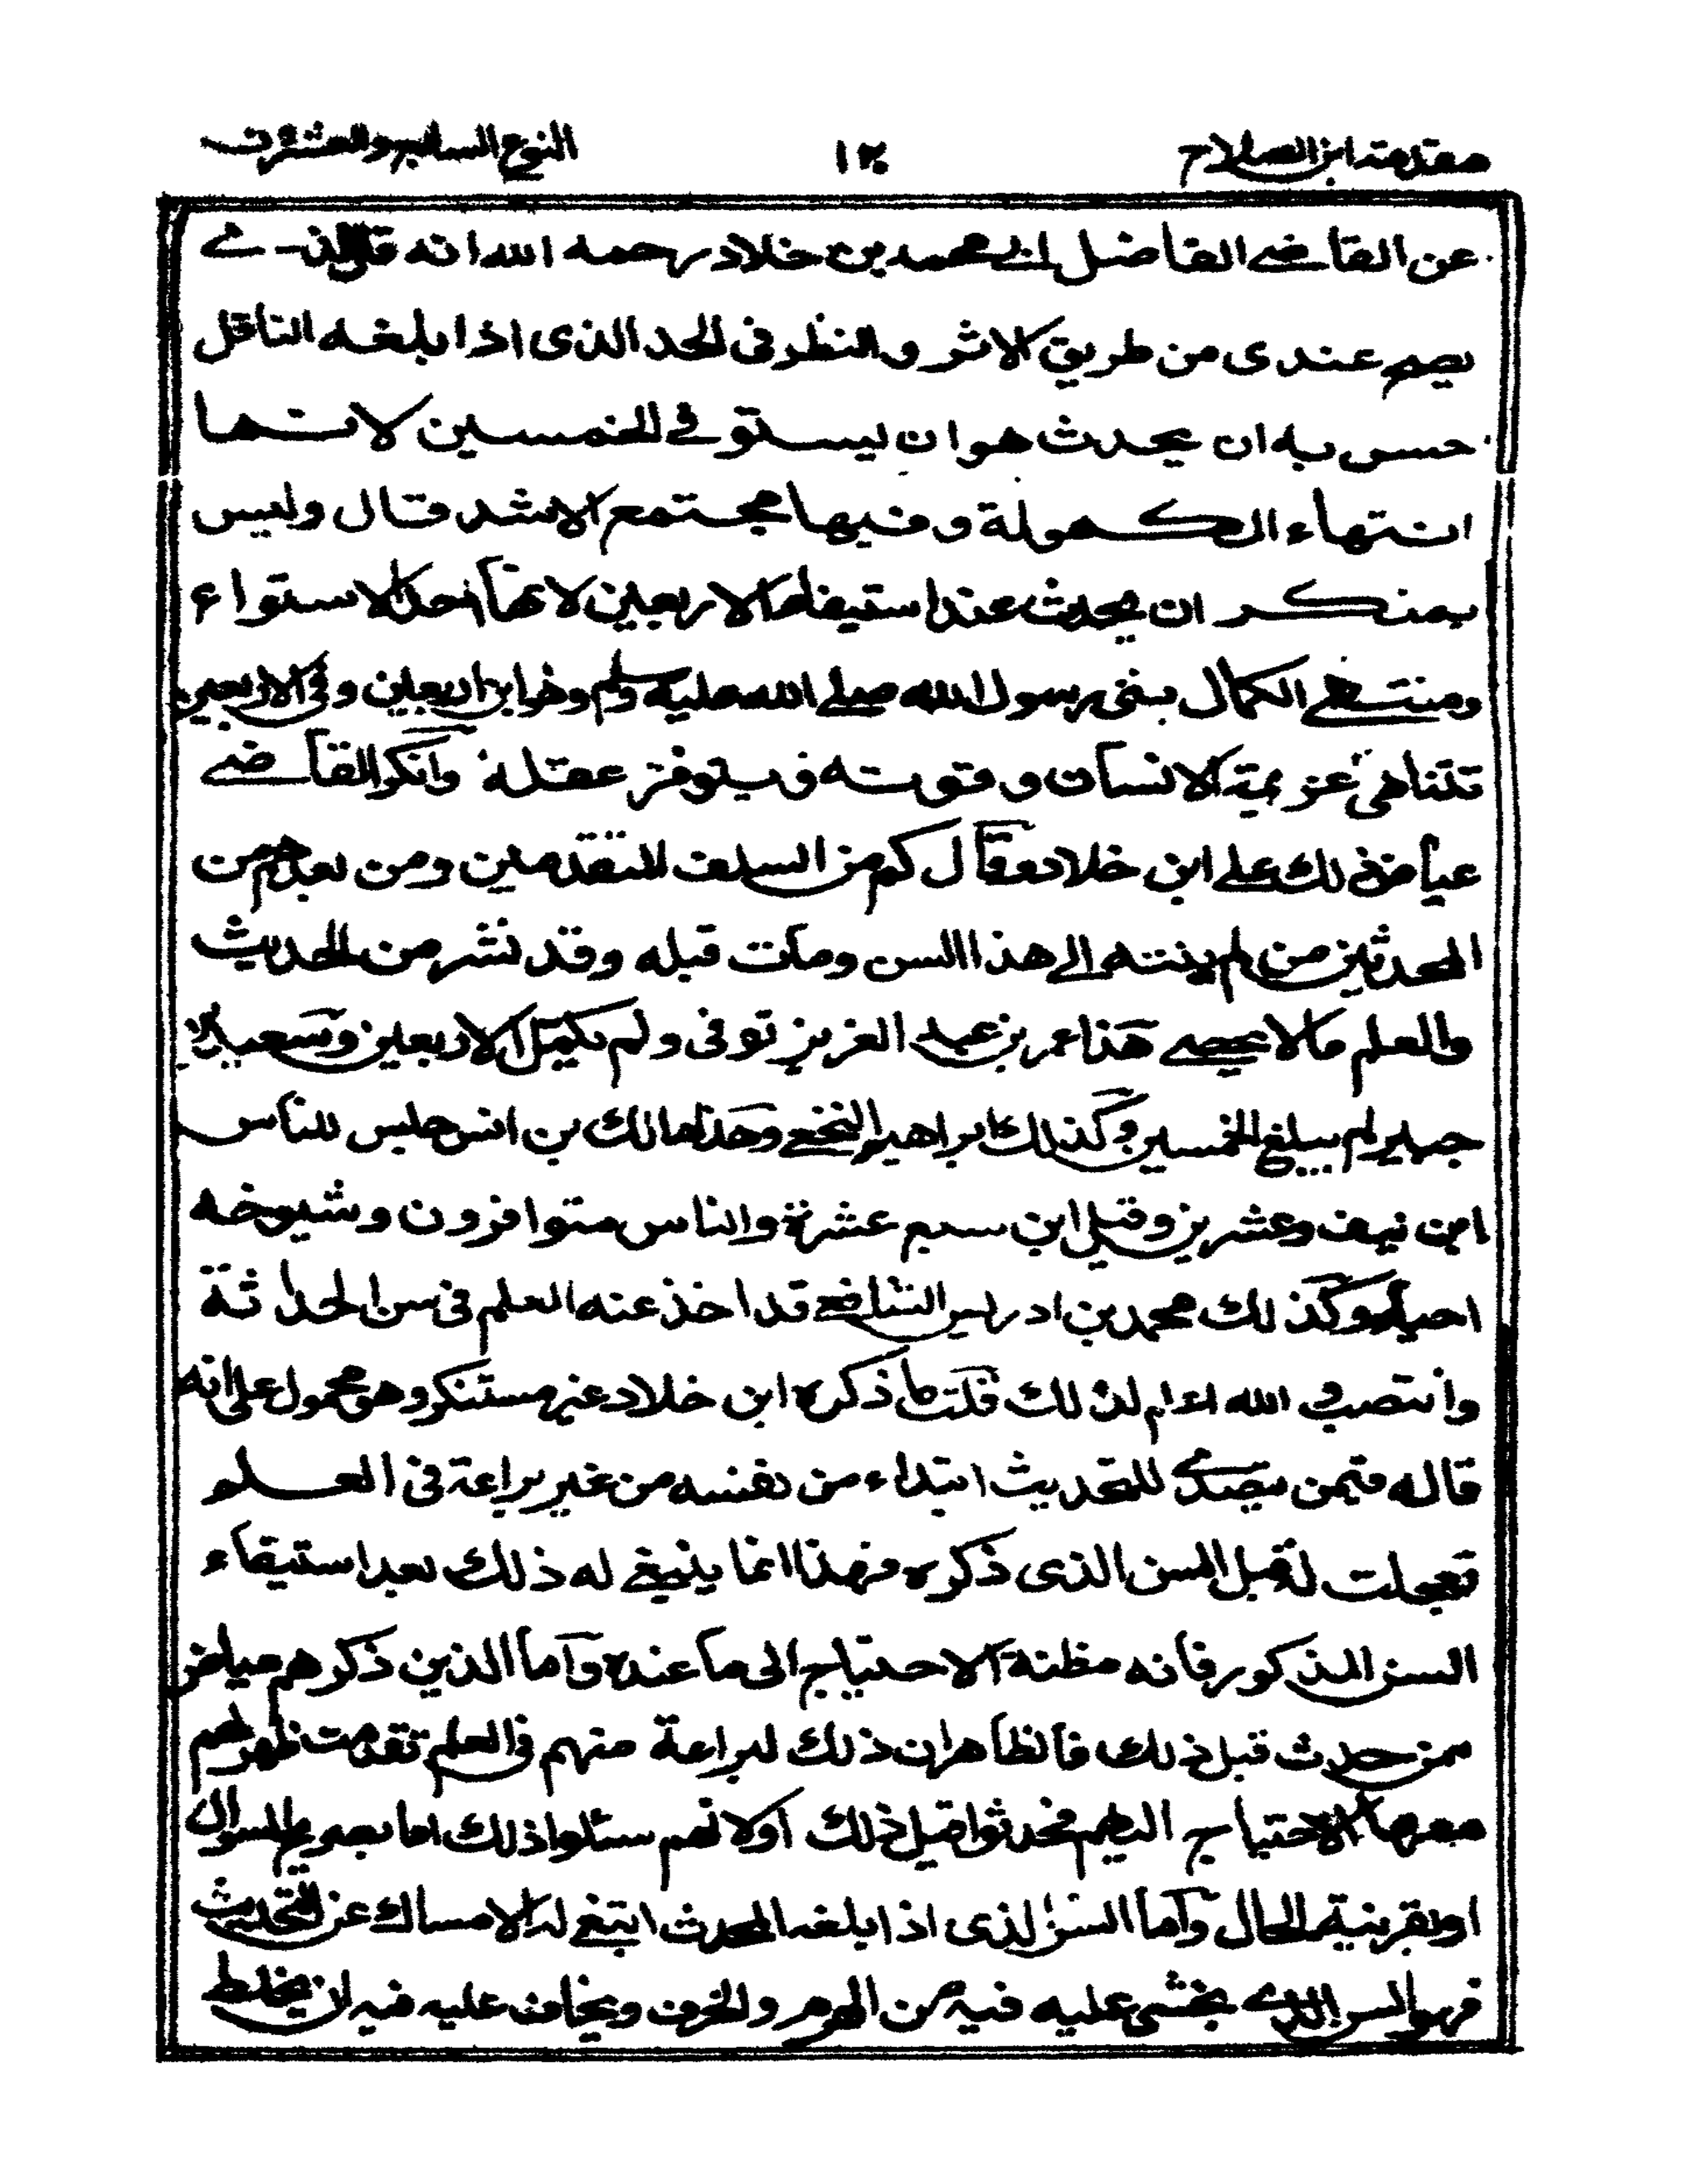 مقدمة ابن الصلاح
النوع السابع والعشرون
عن القاضي الفاضل ابي محمد بن خلاد رحمه الله انه قال الذي
يصح عندى من طريق الاثر والنظر فى الحد الذى اذا بلغه الناقل
حسن به ان يحدث هو ان يستوفي الخمسين لانها
انتهاء الكهولة وفيها مجتمع الاشد قال وليس
بمنكر ان يحدث عند استيفاء الاربعين لانها حد الاستواء
ومنتهى الكمال نبئ رسول الله صلى الله عليه وسلم وهو ابن اربعين وفى الاربعين
تتناهى عزيمة الانسان وقوته ويتوفر عقله وانكر القاضي
عياض ذلك على ابن خلاد وقال كم من السلف المتقدمين ومن بعدهم من
المحدثين من لم ينته الى هذا السن ومات قبله وقد نشر من الحديث
والعلم مالا يحصى هذا عمر بن عبد العزيز توفى ولم يكمل الاربعين وسعيد بن
جبير لم يبلغ الخمسين وكذلك ابراهيم النخعي وهذا مالك بن انس جلس للناس
ابن نيف وعشرين وقيل ابن سبع عشرة والناس متوافرون وشيوخه
احياء وكذلك محمد بن ادريس الشافعي قد اخذ عنه العلم فى سن الحداثة
وانتصب لذلك قلت ما ذكره ابن خلاد غير مستنكر وهو محمول على انه
قاله فيمن يتصدى للتحديث ابتداء من نفسه من غير براعة فى العلم
تعجلت له قبل السن الذى ذكره فهذا انما ينبغي له ذلك بعد استيفاء
السن المذكور فانه مظنة الاحتياج الى ما عنده واما الذين ذكرهم عياض
ممن حدث قبل ذلك فالظاهر ان ذلك لبراعة منهم فى العلم تقدمت ظهر لهم
معها الاحتياج اليهم فحدثوا قبل ذلك اولانهم سئلوا ذلك اما بصريح السوال
او بقرينة الحال واما السن الذى اذا بلغه المحدث ابتغي له الامساك عن التحديث
فهو السن الذي يخشى عليه فيه من الهرم والخرف ويخاف عليه فيه ان يخلط